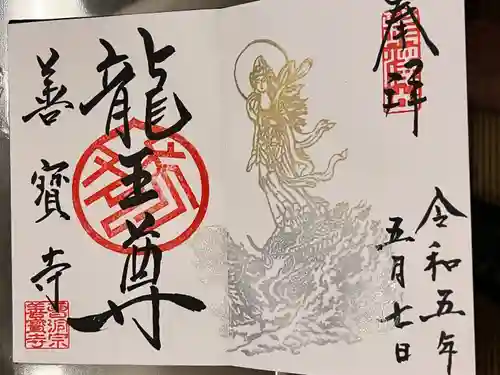 奉拝
令和五年
五月七日
龍王尊
善寳寺
曹洞宗
善寳寺